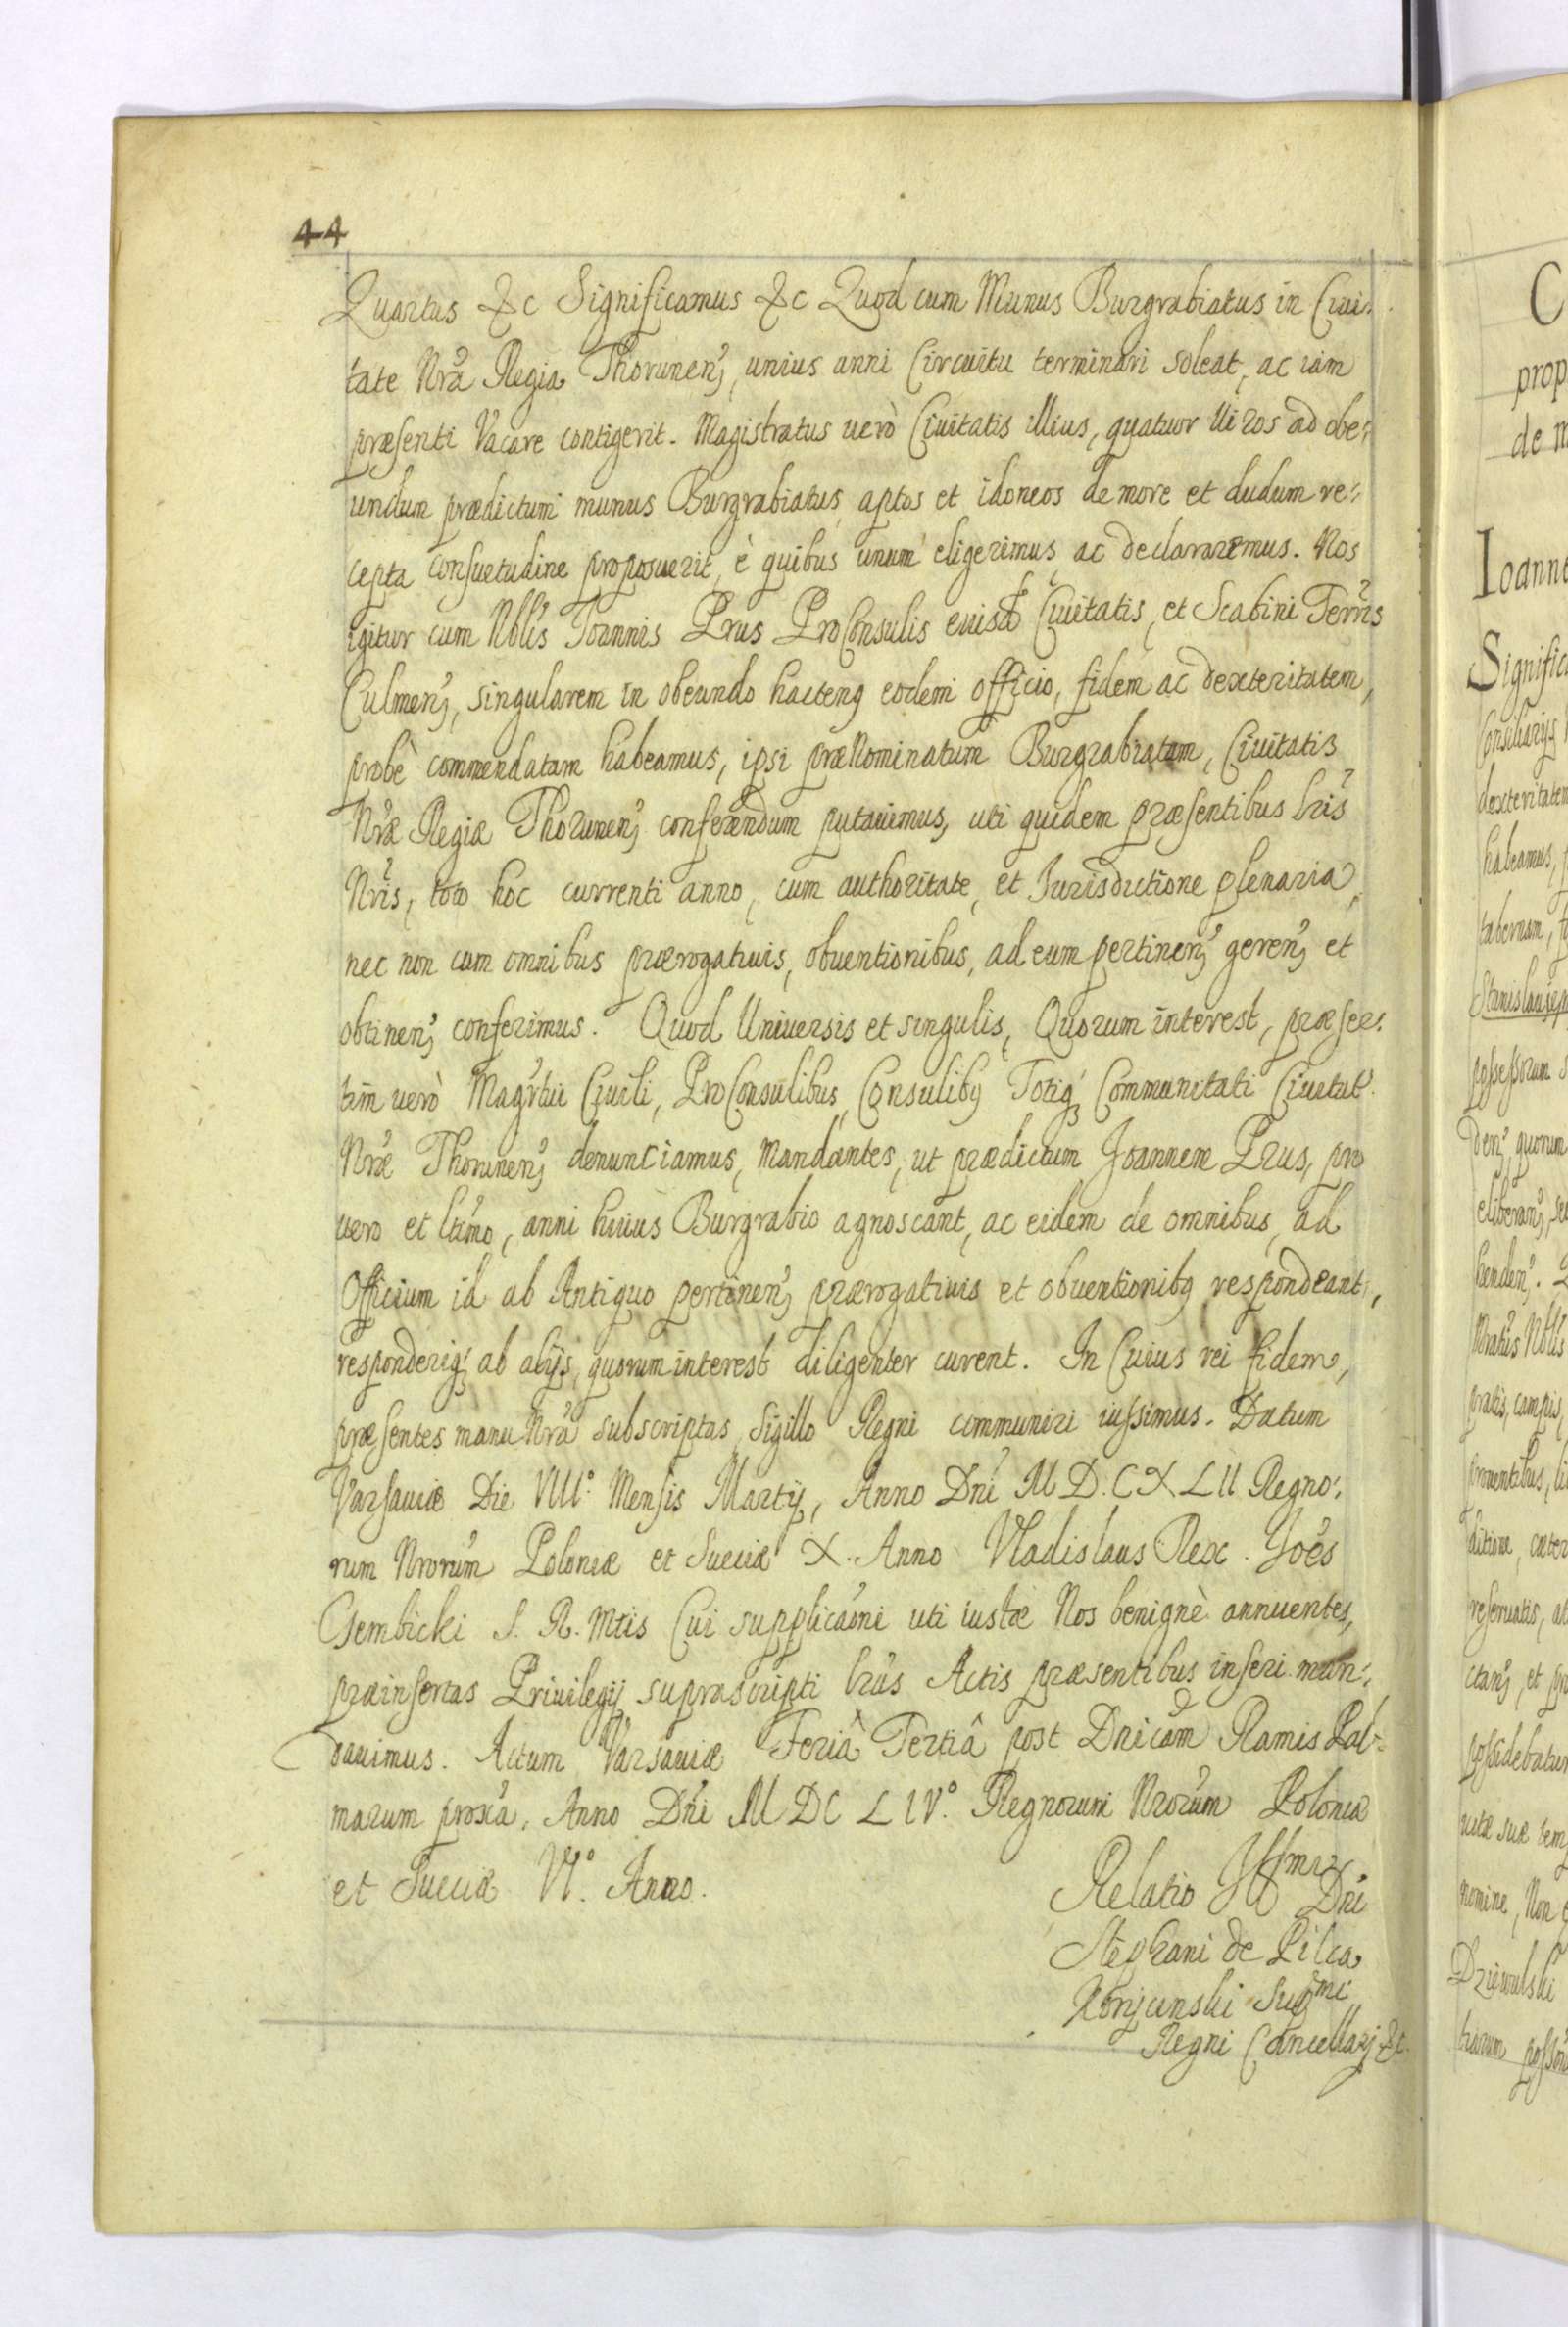 44
Quartus &c Significamus &c Quod cum Munus Burgrabiatus in Ciui-
tate Nra Regia Thorunen, unius anni Circuitu terminari soleat, ac iam
præsenti Vacare contigerit. Magistratus uerò Ciuitatis illius, quatuor Viros ad obe-
undum prædictum munus Burgrabiatus, aptos et idoneos de more et dudum re-
cepta consuetudine proposuerit, è quibus unum eligerimus, ac declararemus. Nos
igitur cum Nobis Ioannis Prus ProConsulis euisd Ciuitatis, et Scabini Terris
Culmen, singularem in obeundo hactenq eodem officio, fidem ac dexteritatem,
probè commendatam habeamus, ipsi præNominatum Burgrabiatum, Ciuitatis
Nræ Regiæ Thorunen, conferendum putauimus, uti quidem præsentibus Lris
Nris, toto hoc currenti anno, cum authoritate, et Jurisdictione plenaria,
nec non cum omnibus prærogatiuis, obuentionibus, ad eum pertinen, geren, et
obtinen, conferimus. Quod Uniuersis et singulis, Quorum interest, præser-
tim uerò Magrtui Ciuili, ProConsulibus, Consulibq Totiq Communitati Ciuitat
Nræ Thorunen, denunciamus, Mandantes, ut prædictum Joannem Prus, pro
uero et ltimo, anni huius Burgrabio agnoscant, ac eidem de omnibus, ad
Officium id ab Antiquo pertinen, prærogatiuis et obuentionibq respondeant,
responderiq ab alijs, quorum interest diligenter curent. In Cuius rei fidem,
præsentes manu Nra subscriptas, Sigillo Regni communiri iussimus. Datum
Varsauiæ Die VIII° Mensis Martij, Anno Dni M D. C X L II Regno-
rum Nrorum Poloniæ et Sueciæ X. Anno Vladislaus Rex. Joes
Gembicki S. R. Mtis Cui supplicaoni uti iustæ Nos benignè annuentes,
præinsertas Priuilegij suprascripti lras Actis præsentibus inseri man-
dauimus. Actum Varsauiæ Feriâ Tertiâ post Dnicam Ramis Pal-
marum proxa, Anno Dni M DC L IV.° Regnorum Nrorum Poloniæ
et Sueciæ VI.° Anno.
Relatio Illmi Dni
Stephani de Pilca
Korycinski Supmi
Regni Cancellarij &c.